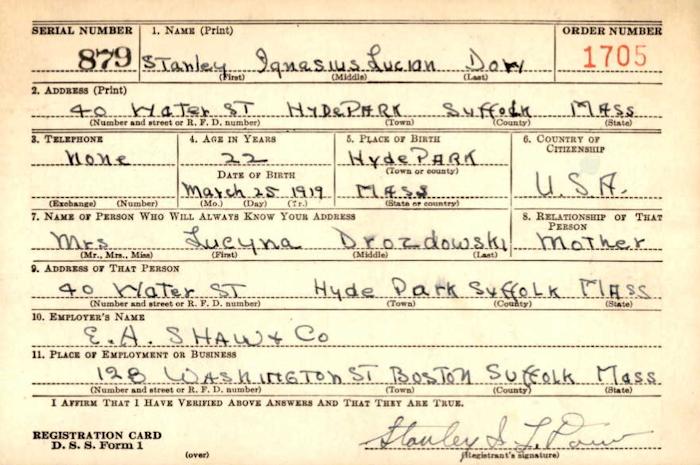 SERIAL NUMBER 1. NAME (Print) ORDER NUMBER
879 Stanley Ignasius Lucian 1705
(First) (Middle) (Last)
2. ADDRESS (Print)
40 Water ST HYDE PARK Suffolk MASS
(Number and street or R. F. D. number) (Town) (County) (State)
3. TELEPHONE 4. AGE IN YEARS 5. PLACE OF BIRTH 6. COUNTRY OF CITIZENSHIP
None 22 Hyde PARK
DATE OF BIRTH (Town or county) U.S.A.
March 25 1919 MASS
(Exchange) (Number) (Mo.) (Day) (Yr.) (State or country)
7. NAME OF PERSON WHO WILL ALWAYS KNOW YOUR ADDRESS 8. RELATIONSHIP OF THAT PERSON
Mrs Lucyna Drozdowski Mother
(Mr., Mrs., Miss) (First) (Middle) (Last)
9. ADDRESS OF THAT PERSON
40 Water ST Hyde Park Suffolk Mass
(Number and street or R. F. D. number) (Town) (County) (State)
10. EMPLOYER'S NAME
E. A. SHAW & Co
11. PLACE OF EMPLOYMENT OR BUSINESS
128 WASHINGTON ST BOSTON Suffolk Mass
(Number and street or R. F. D. number) (Town) (County) (State)
I AFFIRM THAT I HAVE VERIFIED ABOVE ANSWERS AND THAT THEY ARE TRUE.
REGISTRATION CARD
D. S. S. Form 1 Stanley
(over) (Registrant's signature)